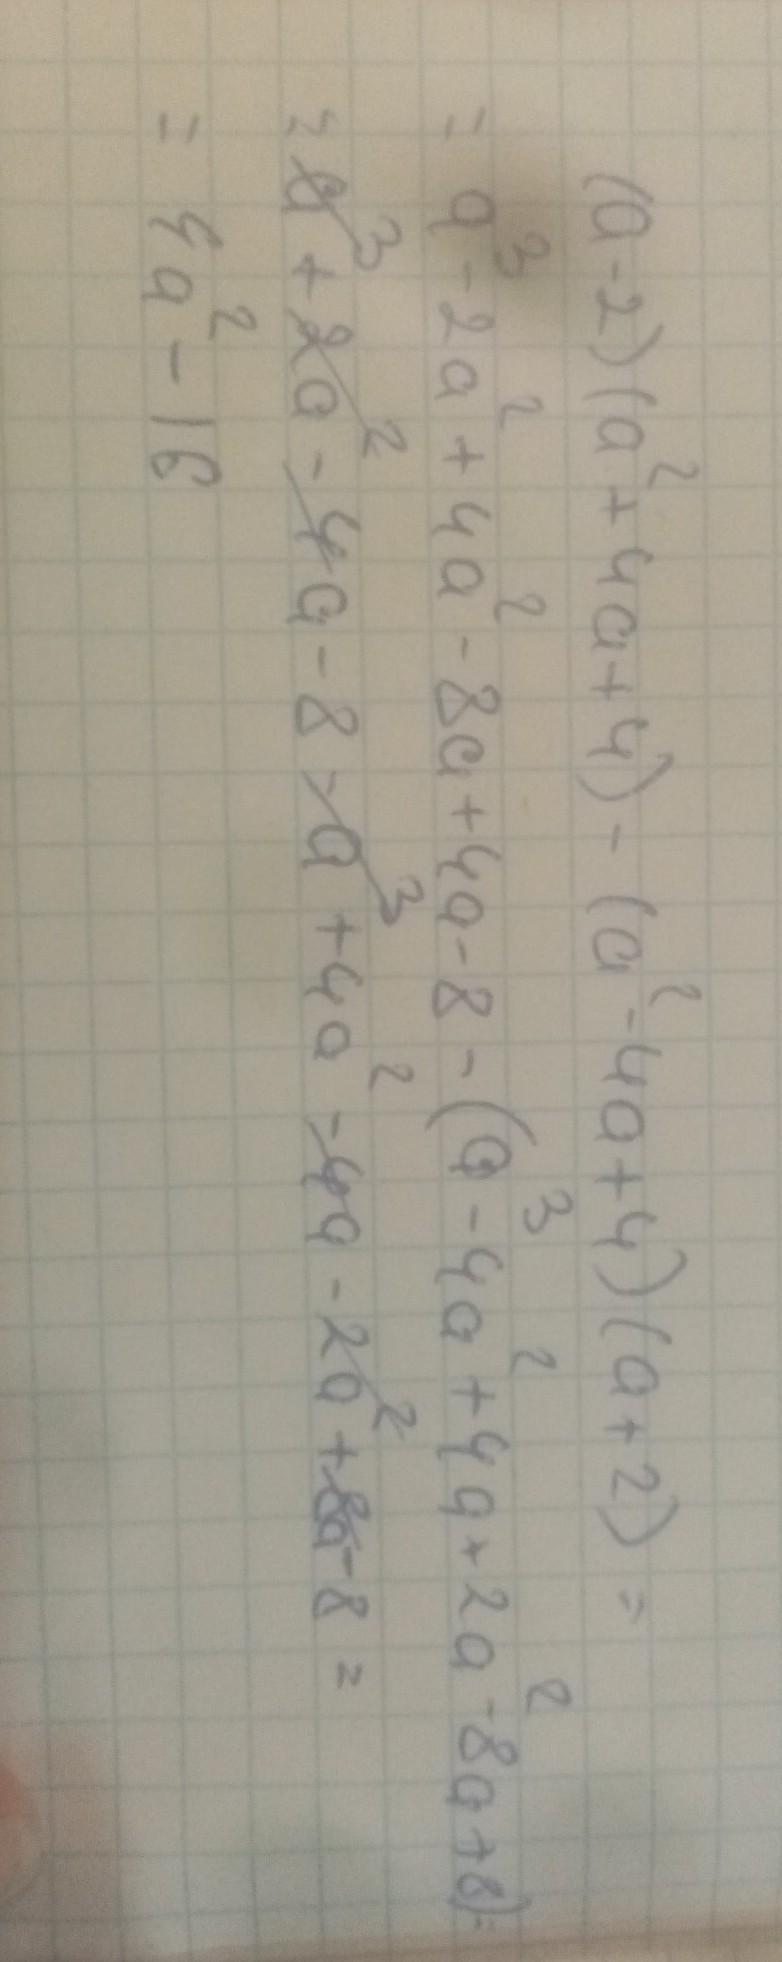 (a-2)(a²+4a+4)-(a²-4a+4)(a+2)=
=a³-2a²+4a²-8a+4a-8-(a³-4a²+4a+2a²-8a+8)=
=a³+2a²-4a-8-a³+4a²-4a-2a²+8a-8=
=4a²-16